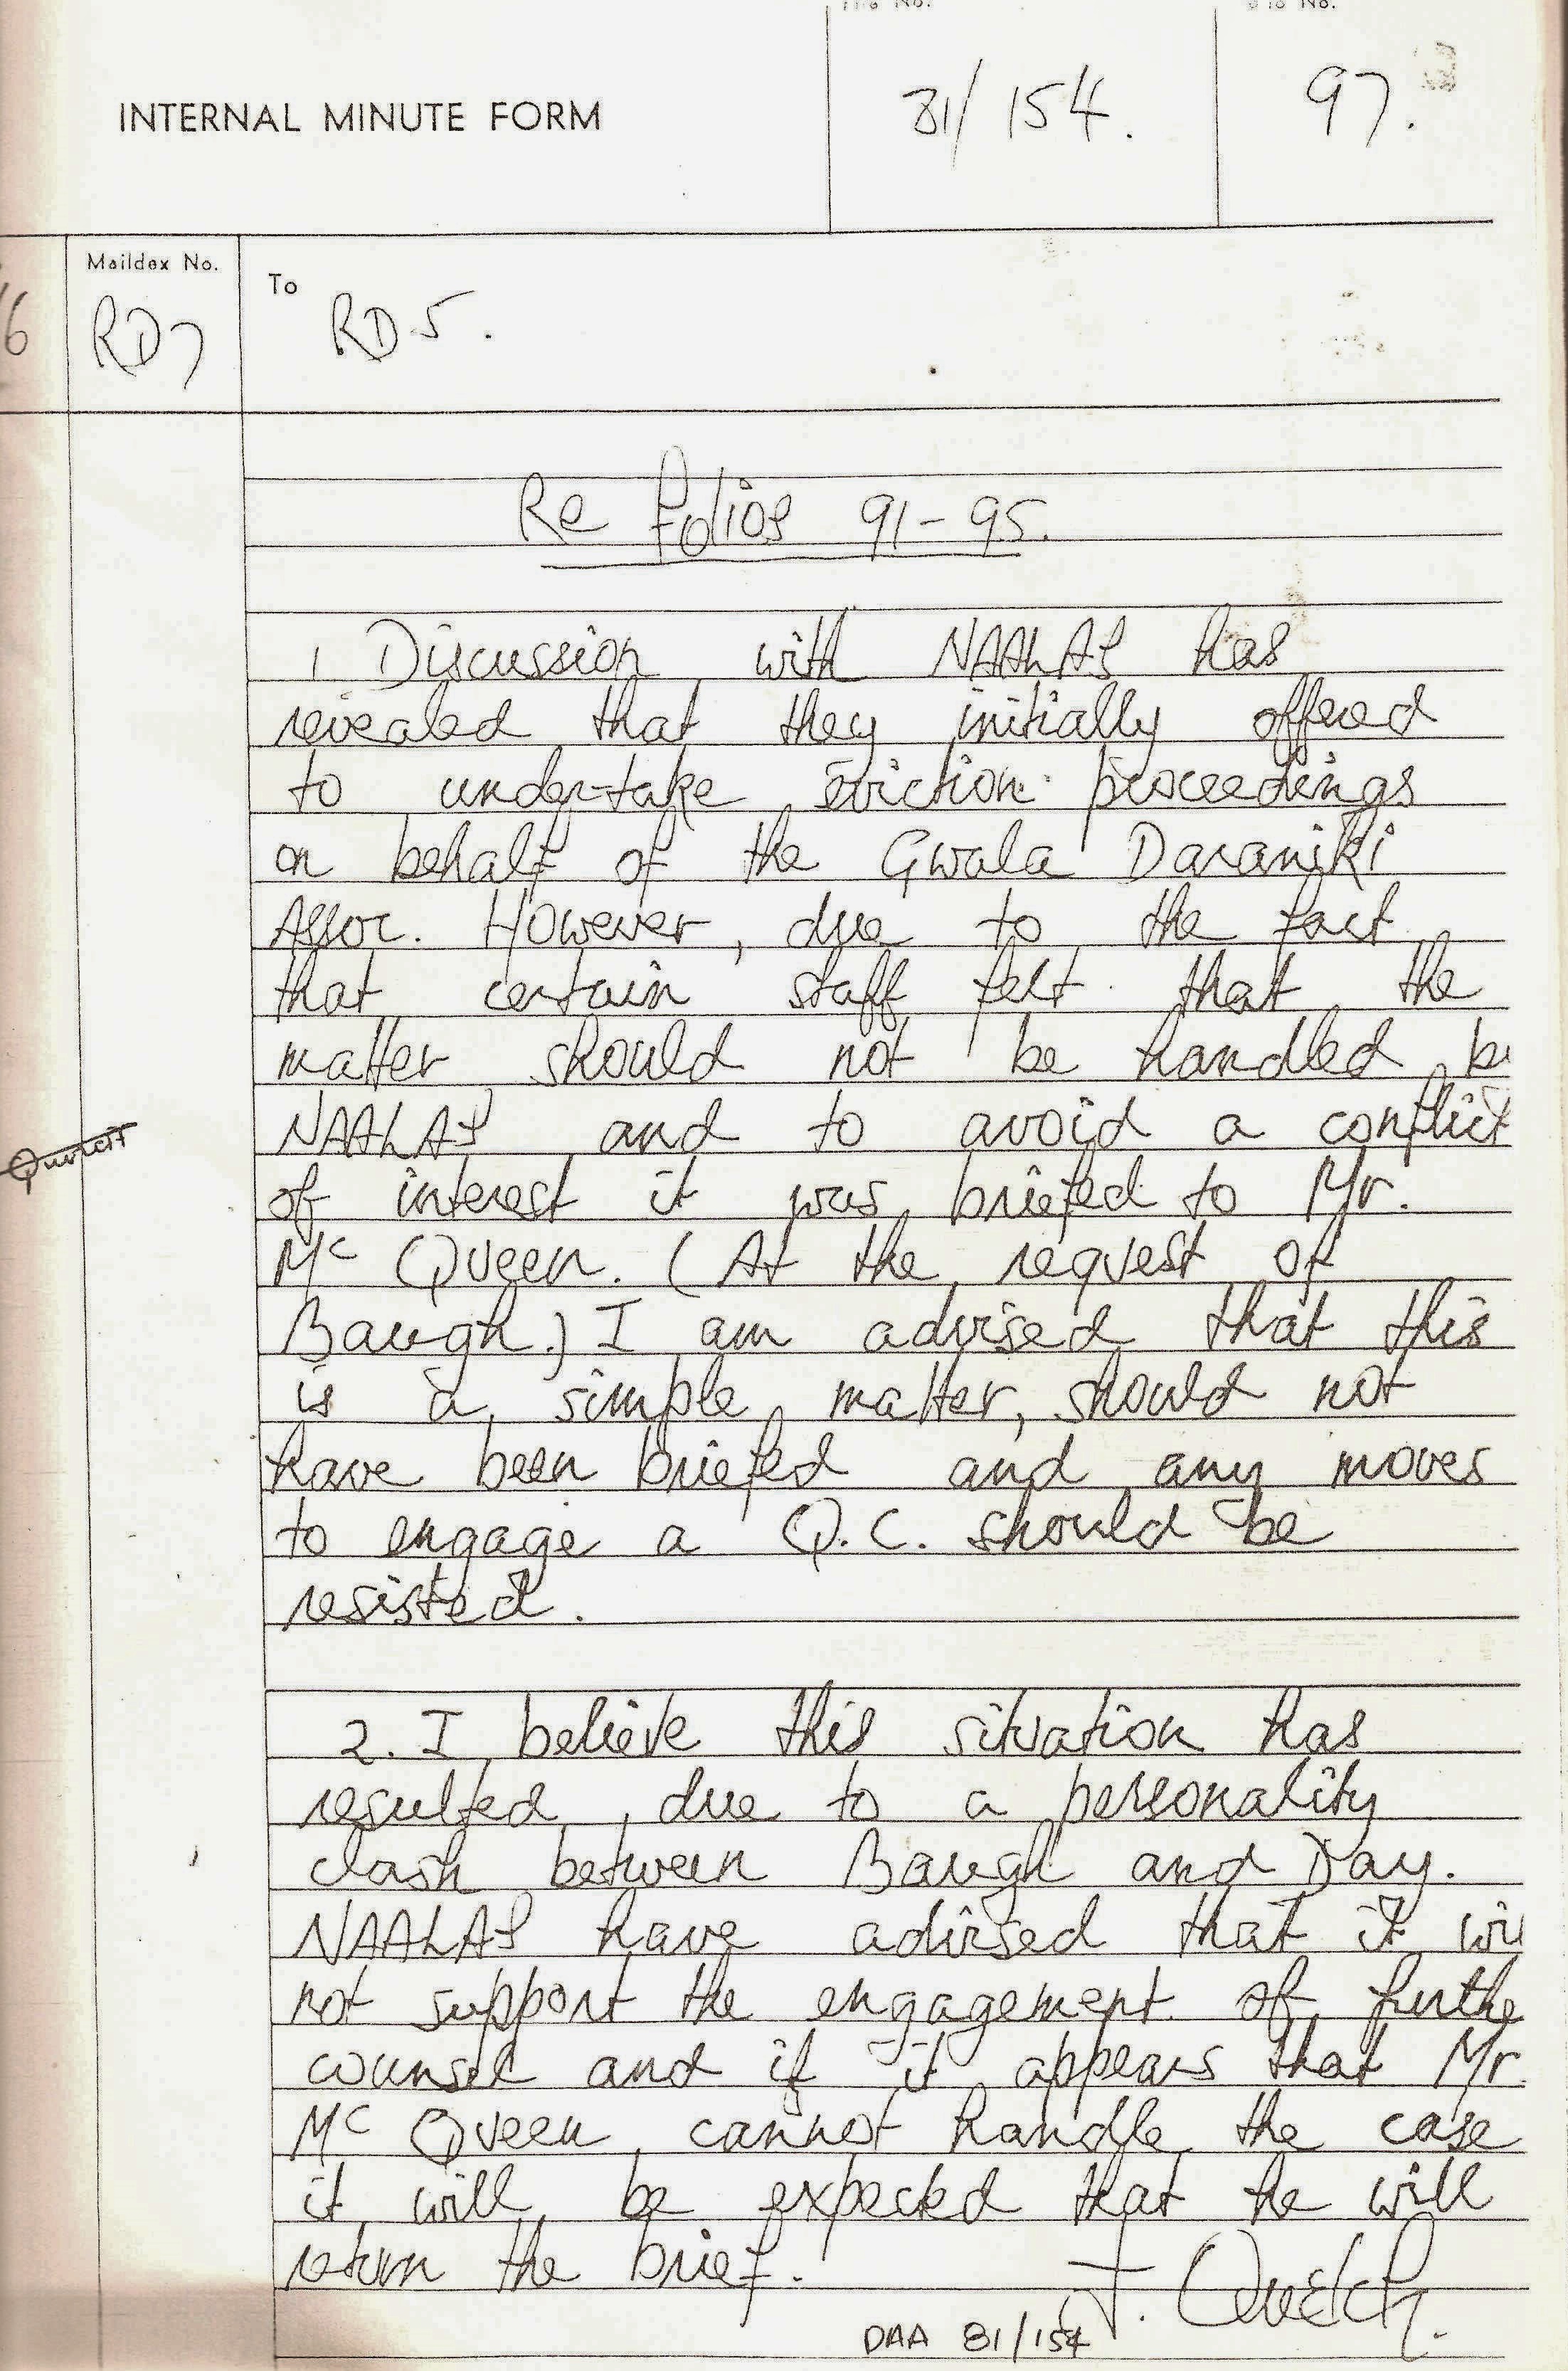 File No.
Folio No.
INTERNAL MINUTE FORM
81/154.
97.
Maildex No.
To
6
RD7
RD5.
Re Folios 91-95.
1 Discussion with NAALAS has
revealed that they initially offered
to undertake eviction proceedings
on behalf of the Gwala Daraniki
Assoc. However, due to the fact
that certain staff felt that the
matter should not be handled b
NAALAS and to avoid a conflict
of interest it was briefed to Mr.
Mc Queen. (At the request of
Baugh.) I am advised that this
is a simple matter, should not
have been briefed and any moves
to engage a Q.C. should be
resisted.
2. I believe this situation has
resulted, due to a personality
clash between Baugh and Day.
NAALAS have advised that it wil
not support the engagement of furthe
counsel and if it appears that Mr.
Mc Queen cannot handle the case
it will be expected that he will
return the brief.
J. Quelch.
DAA 81/154